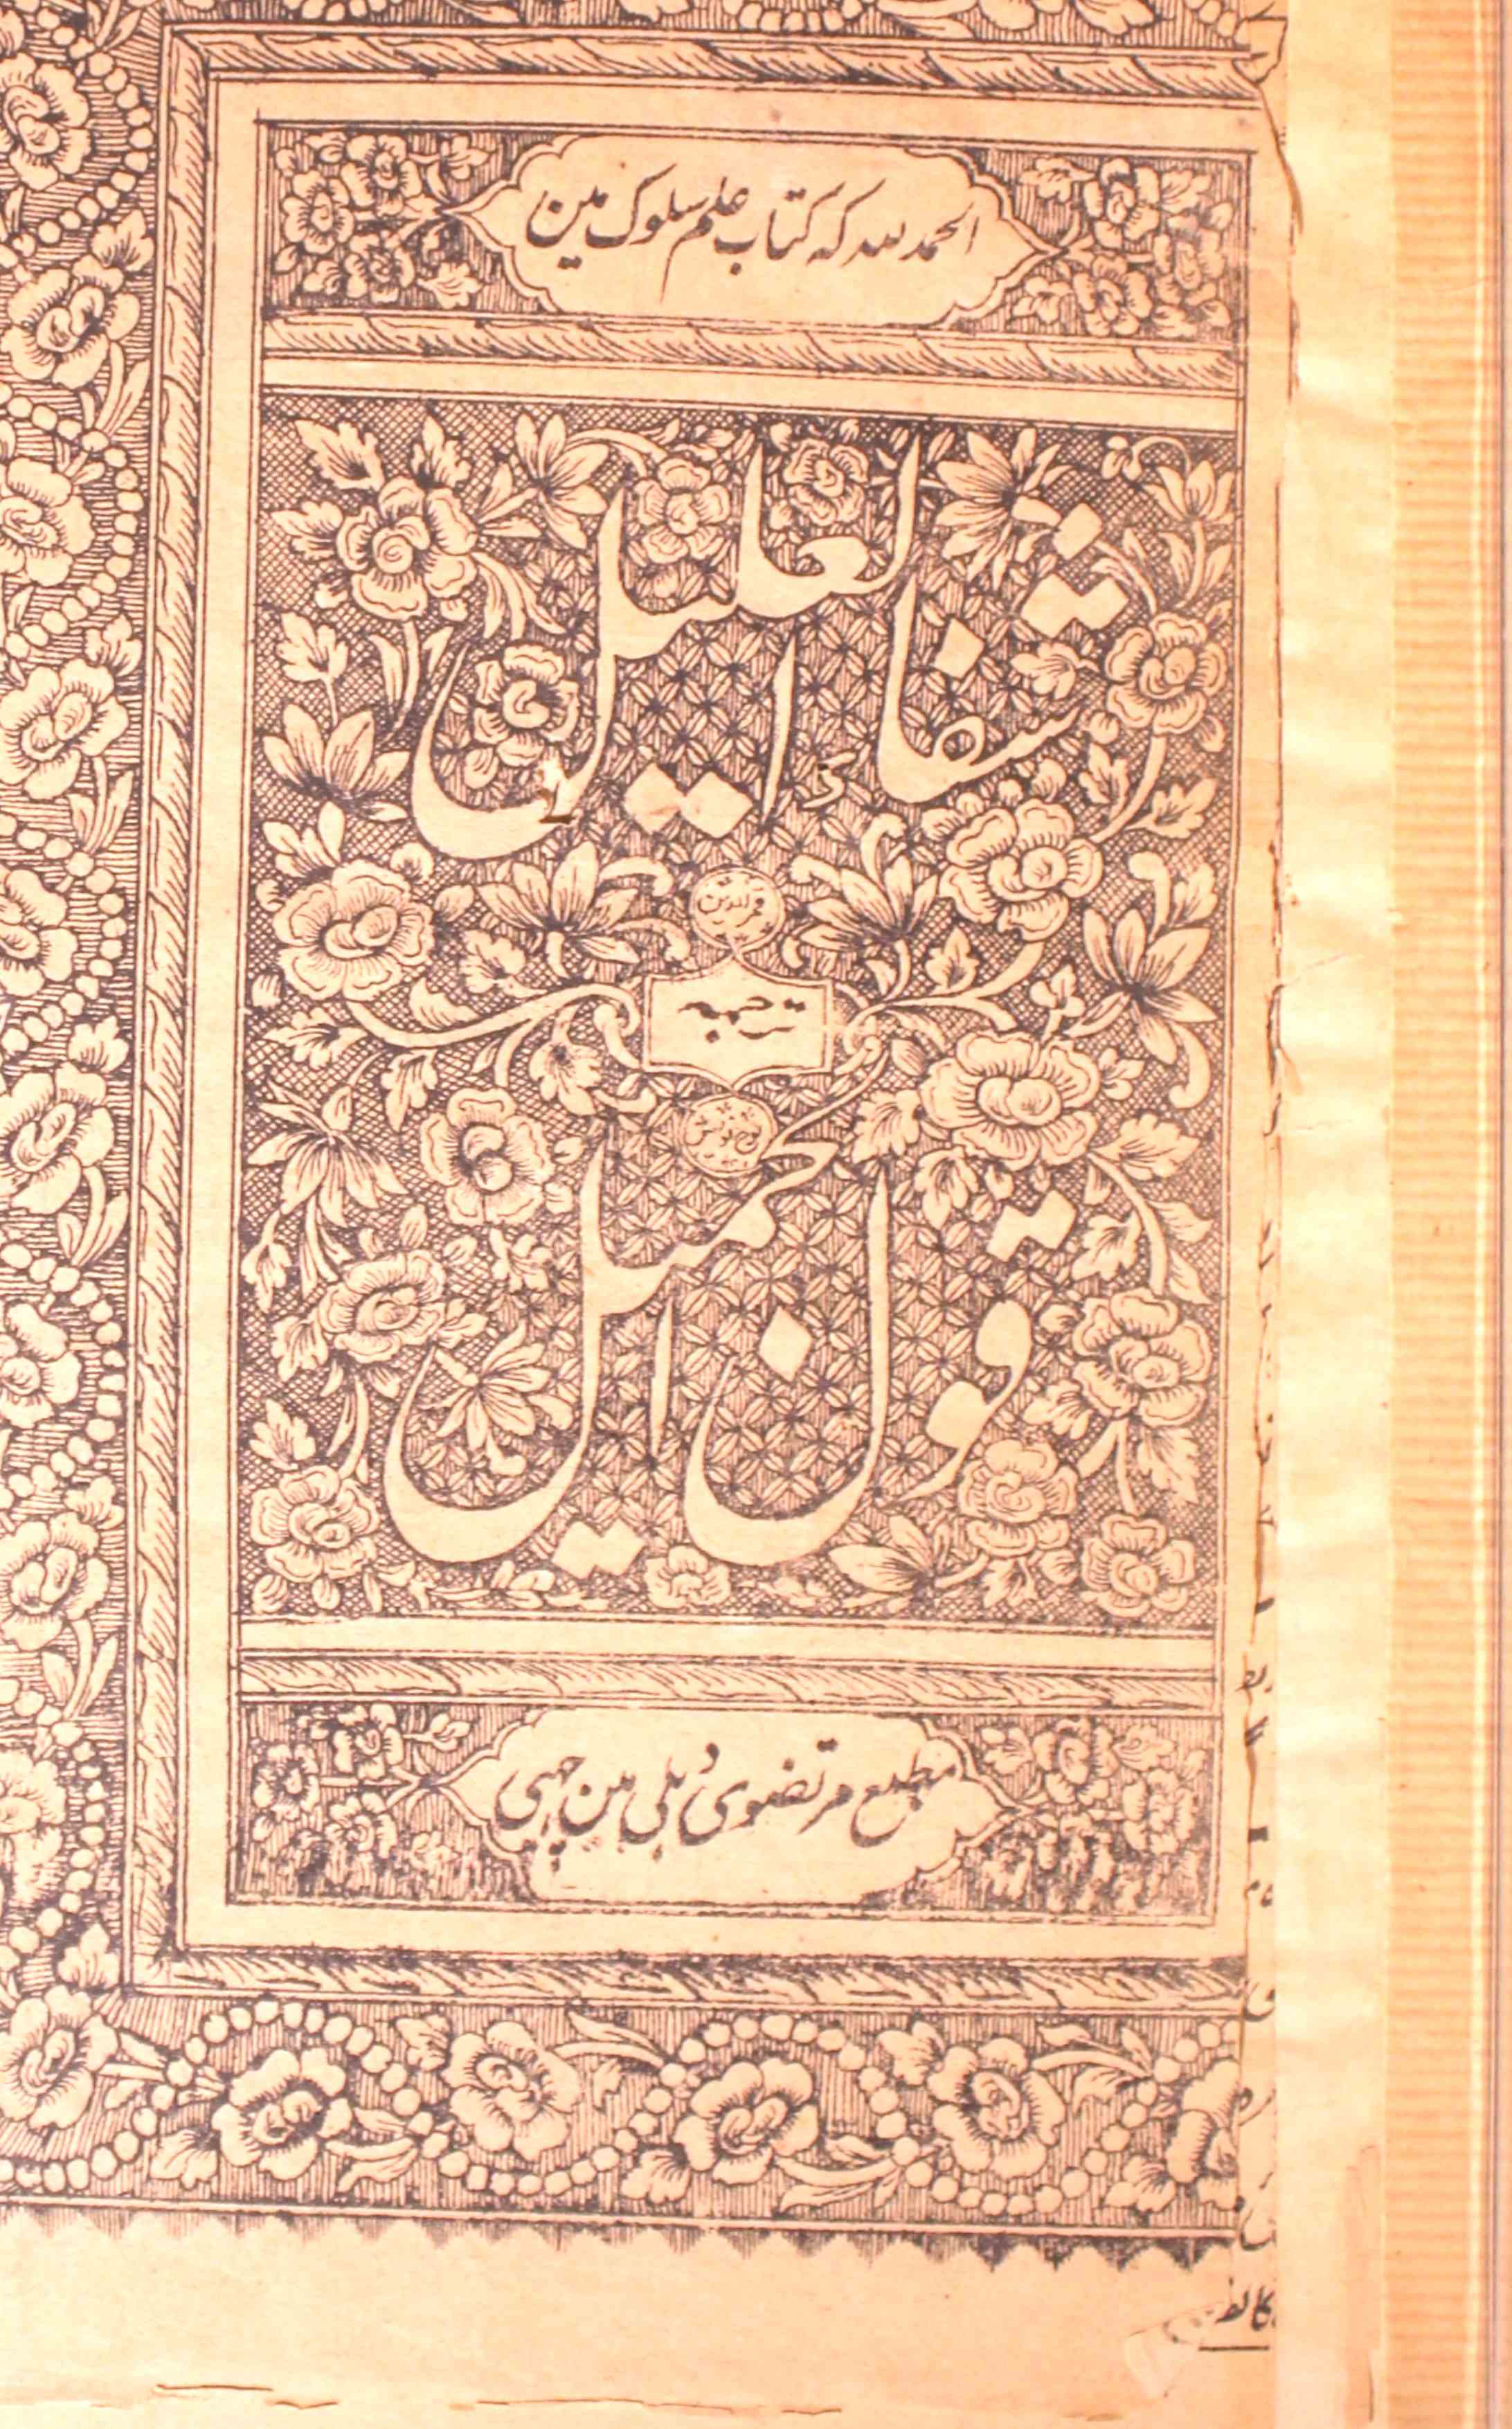 الحمد للہ کہ کتاب علم سلوک مین
شفاء العلیل
ترجمہ
قول الجمیل
مطبع مرتضوی دہلی مین چھپی